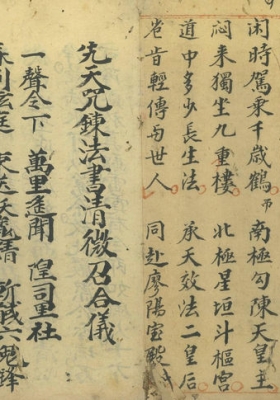 閑時駕乘千歲鶴 南極勾陳天皇主
悶來獨坐九重樓 北極星垣斗樞宮
道中多少長生法 承天效法二皇后
岂肯輕傳与世人 同赴廖陽宝殿
先天咒鍊法書清微召合儀
一聲令下 萬里進聞 隍司里社